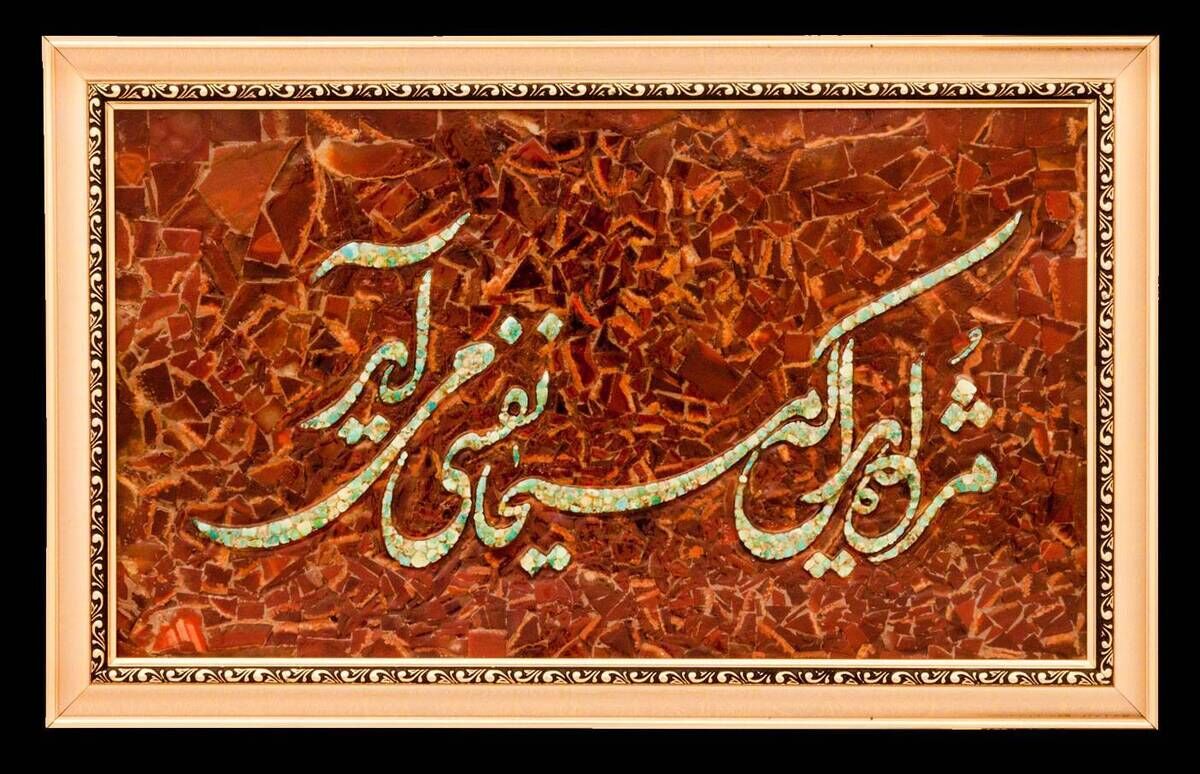 مُژده ایدل که مسیحا نفسی می آید